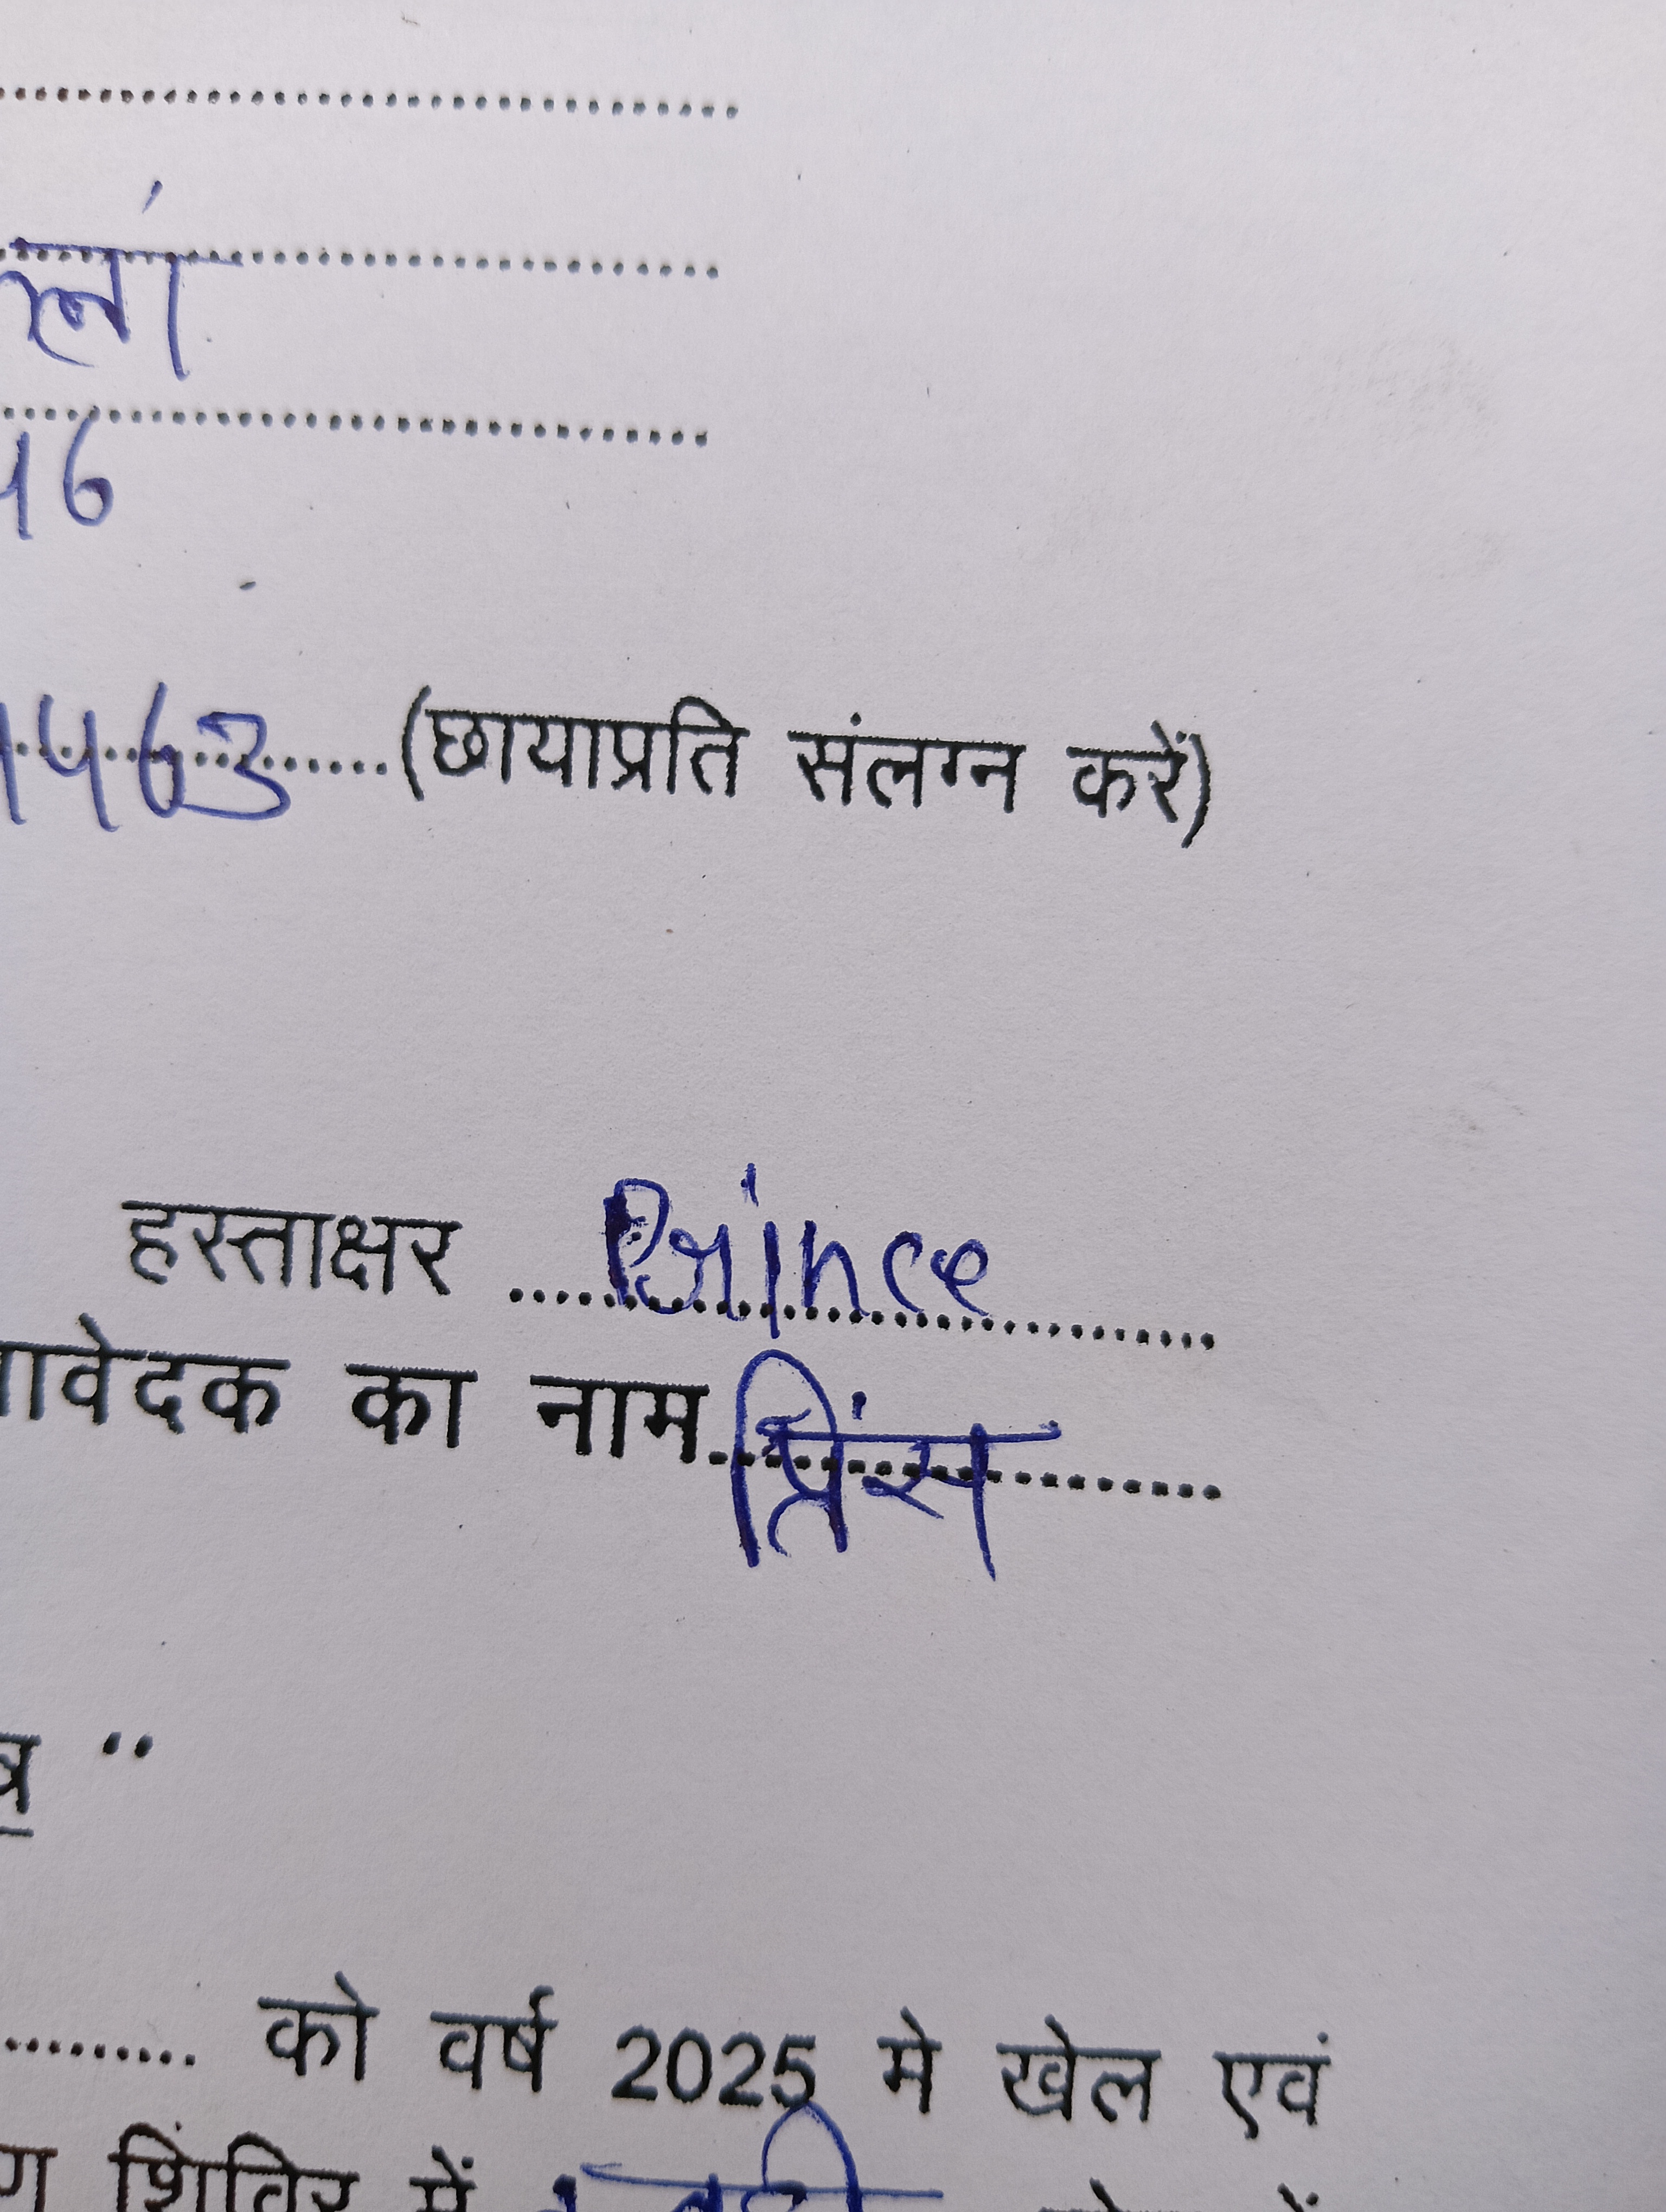 46
1463 (छायाप्रति संलग्न करें)
हस्ताक्षर Prince
आवेदक का नाम प्रिंस
को वर्ष 2025 मे खेल एवं
शिविर में